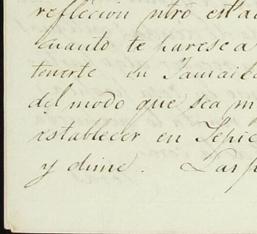 reflección ntrõ est'a
cuanto te parese a
tenerte en Jamaic
del modo que sea m
establecer en Tepic
y dime. Las p